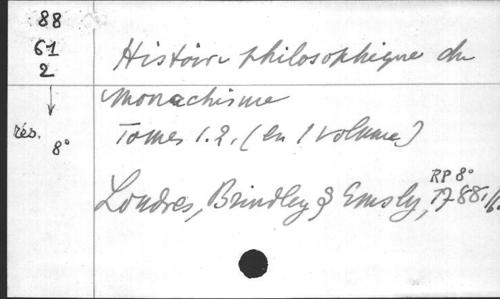 88
61
2
rés.
8°
Histoire philosophique du
monachisme
Tomes 1.2. (en 1 volume)
RP 8°
Londres, Brindley & Emsly, 1788,